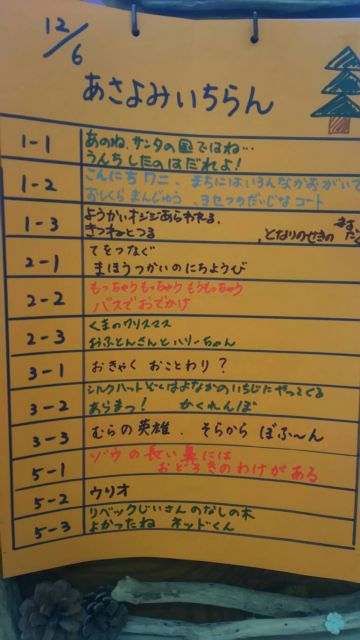 12/6
あさよみいちらん
1-1
あのね、サンタの国ではね…
うんちしたのはだれよ!
1-2
こんにちワニ、まちにはいろんなかおがいて
おしくらまんじゅう、ヨセフのだいじなコート
1-3
ようかいオジジあらわれる、
きつねとつる
、となりのせきの
2-1
てをつなぐ
まほうつかいのにちようび
2-2
もっちゃりもっちゃりもりもっちゃり
バスでおでかけ
2-3
くまのクリスマス
おふとんさんとハリーちゃん
3-1
おきゃく おことわり?
3-2
シルクハットぞくはよなかのいちじにやってくる
あらまっ! かくれんぼ
3-3
むらの英雄、そらから ぼふ〜ん
5-1
ゾウの長い鼻には
おどろきのわけがある
5-2
ウリオ
5-3
リベックじいさんのなしの木
よかったね ネッドくん